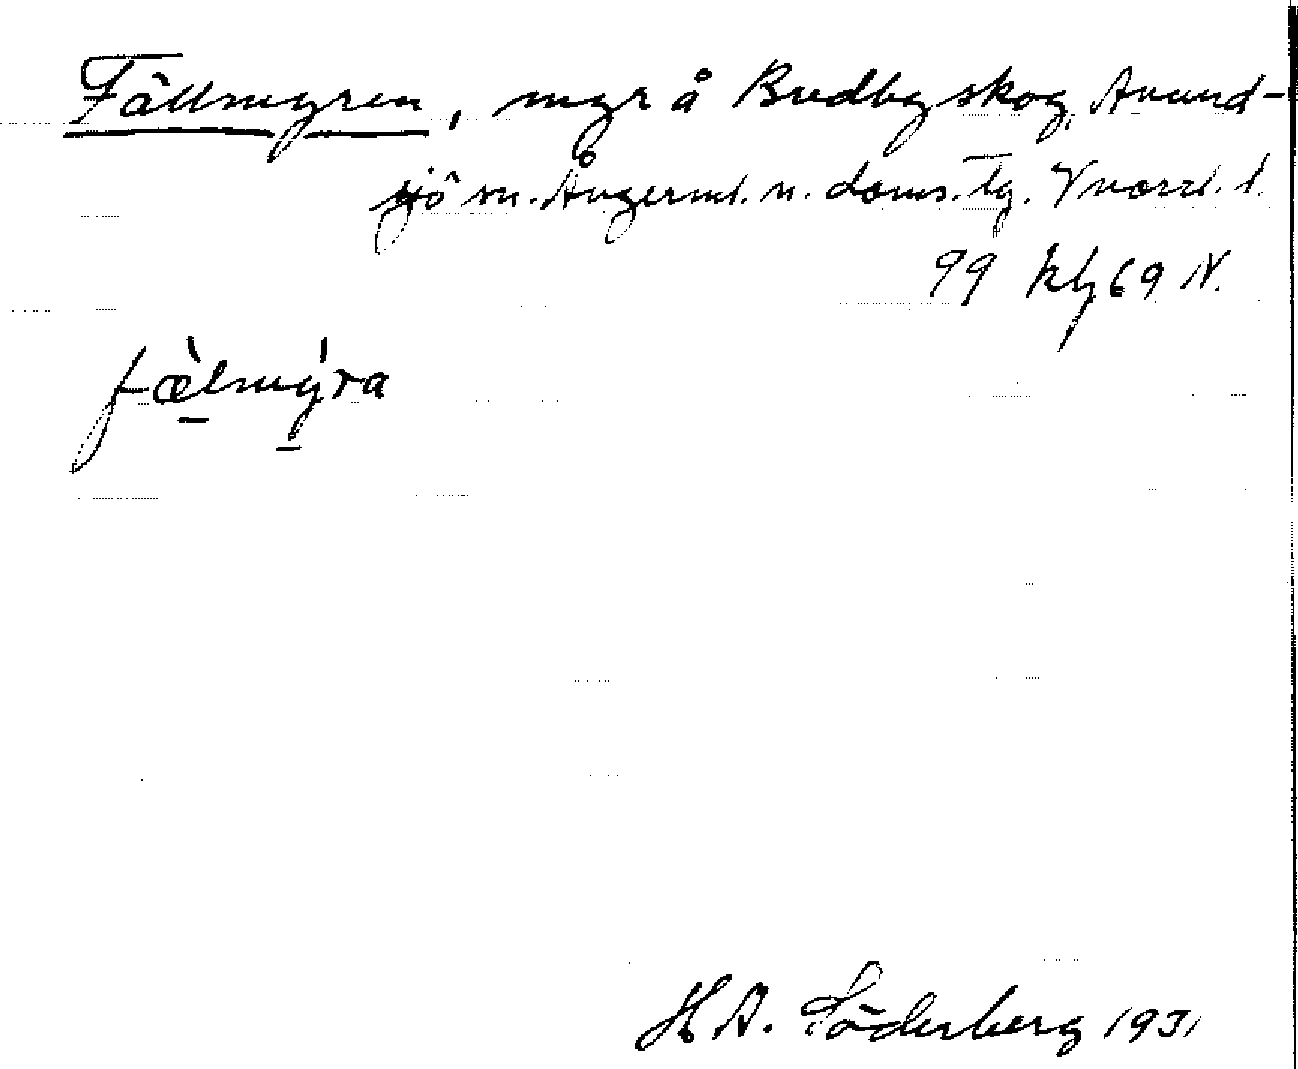 Fällmyren, myr å Bredbyskog, Anund-
sjö sn. Ångerml. n. doms. Tg. Vnorrl. l.
99 kbl 69 N.
fæ̀lmýra
H A. Söderberg 1931